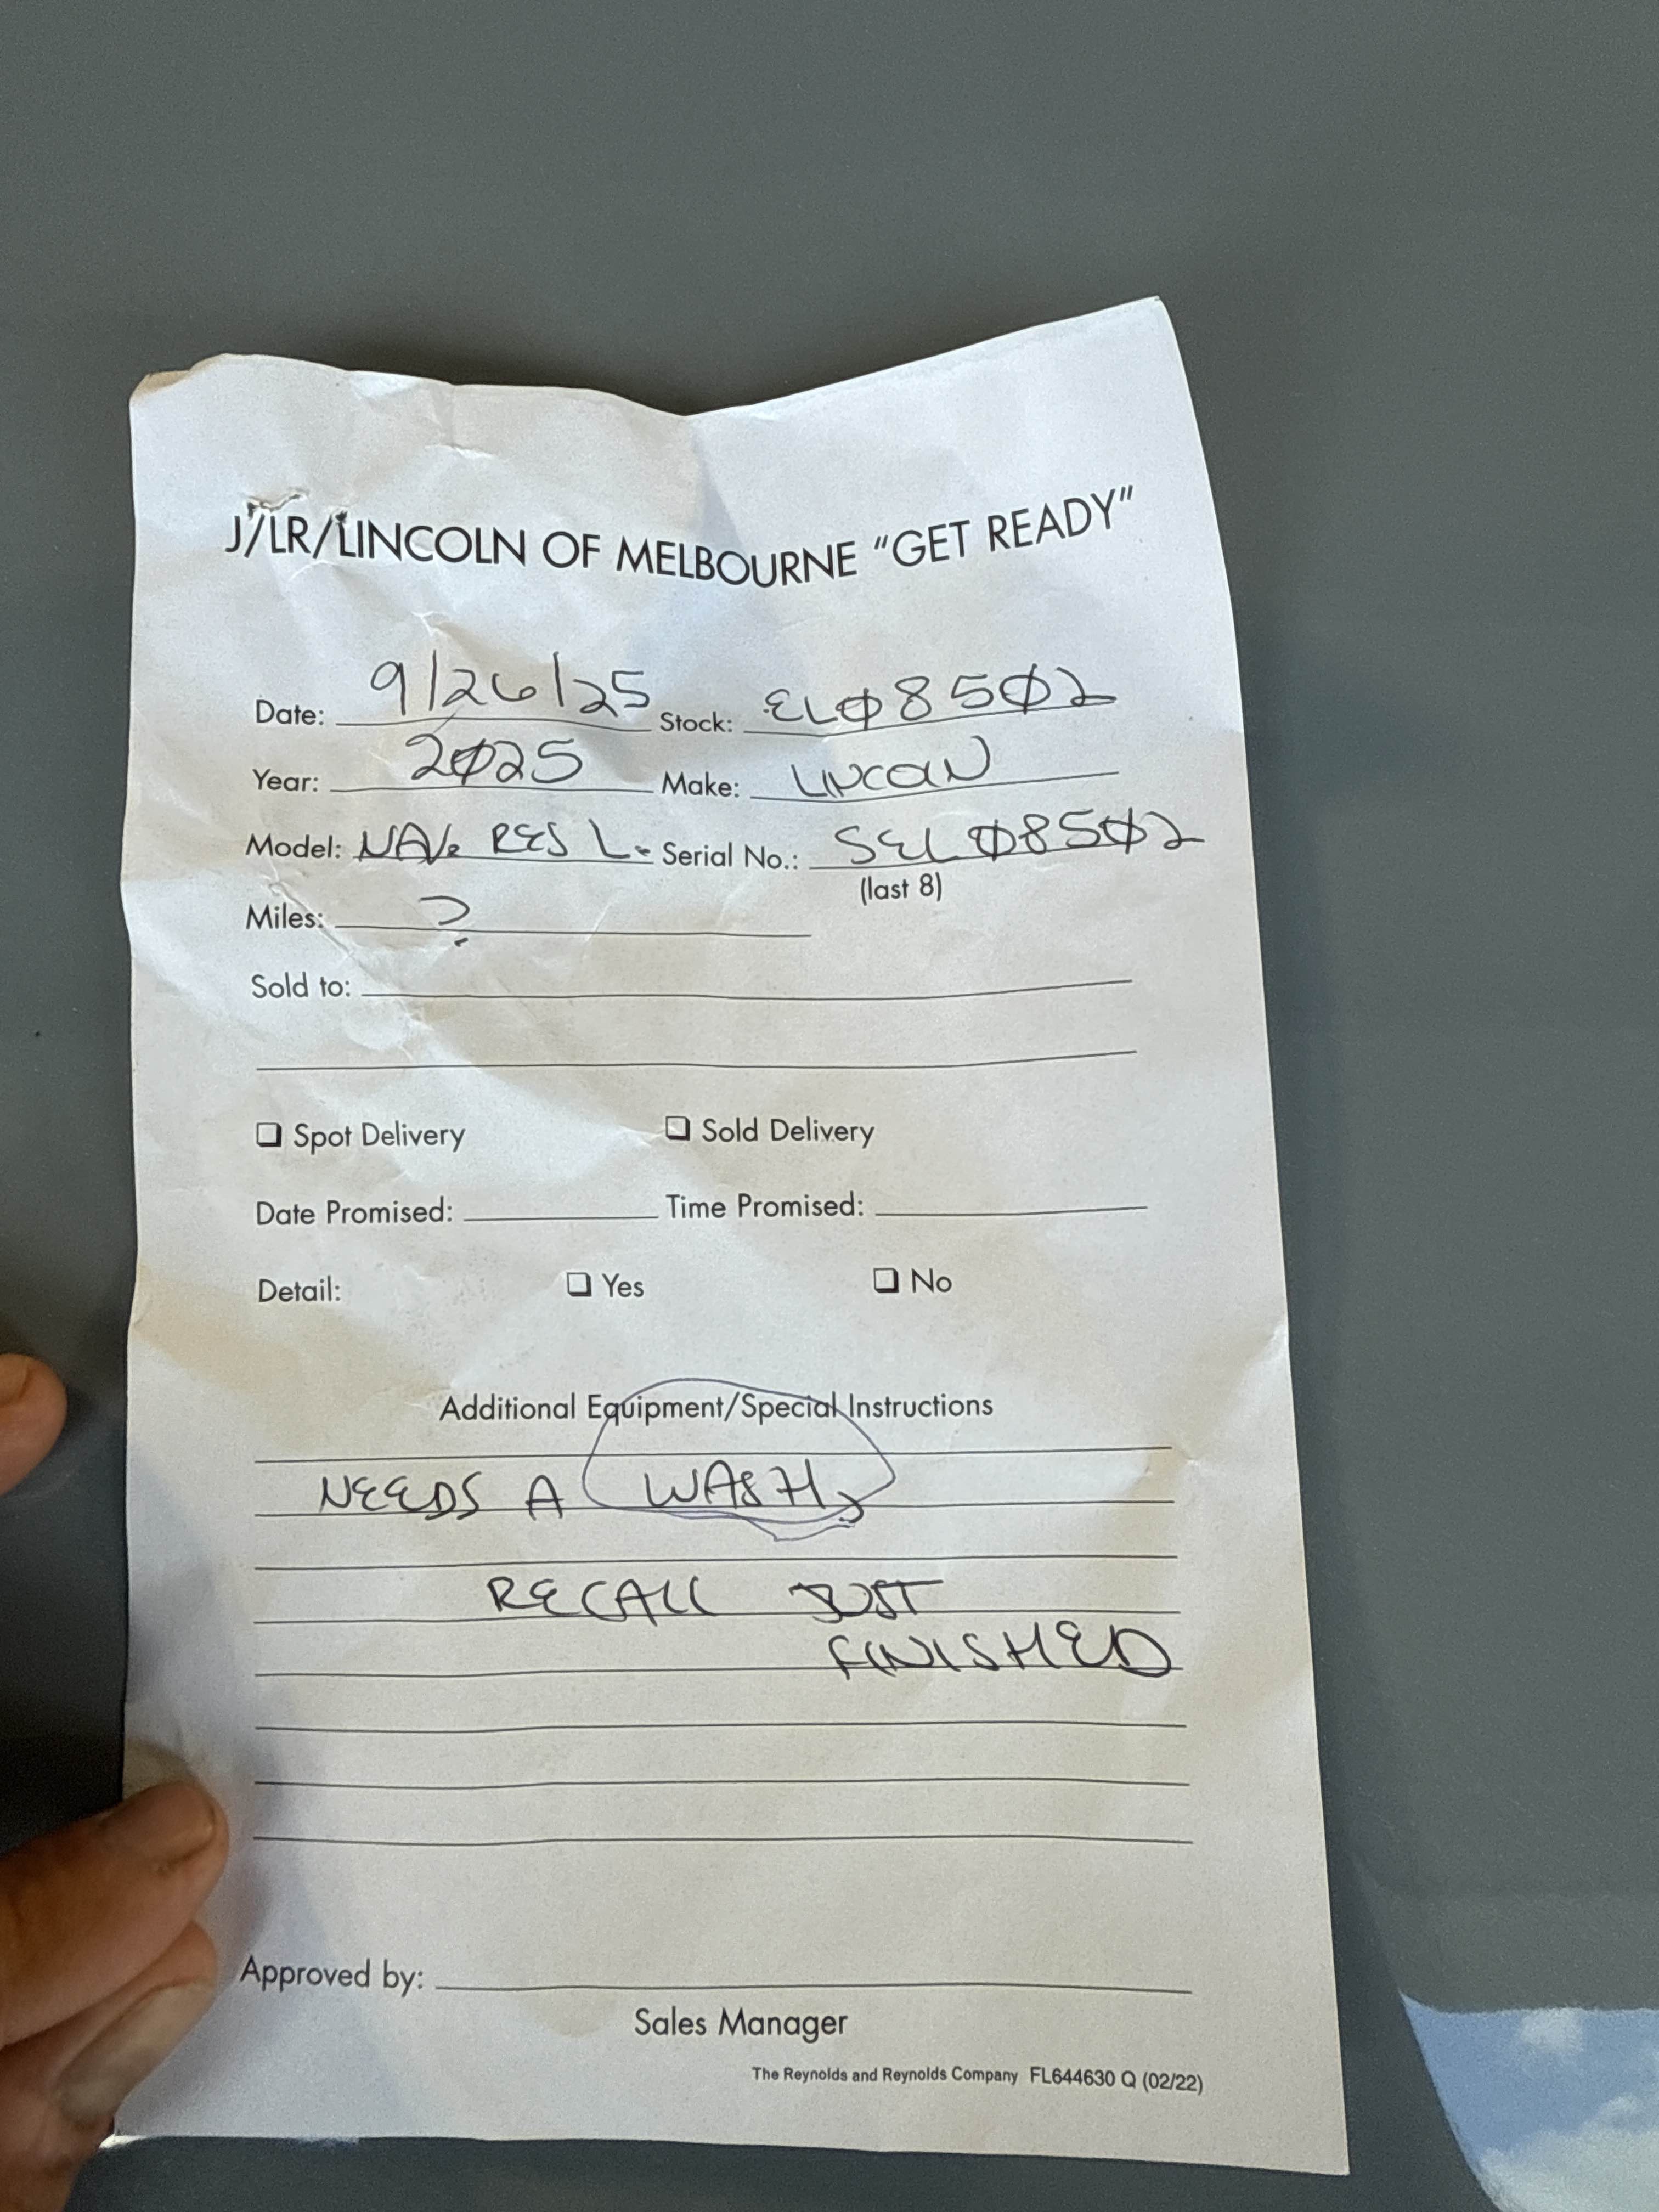 J/LR/LINCOLN OF MELBOURNE "GET READY"
Date: 9/26/25 Stock: EL08502
Year: 2025 Make: LINCOLN
Model: NAV. RES L. Serial No.: SEL08502
(last 8)
Miles: ?
Sold to:
Spot Delivery Sold Delivery
Date Promised: Time Promised:
Detail: Yes No
Additional Equipment/Special Instructions
NEEDS A WASH,
RECALL JUST
FINISHED
Approved by:
Sales Manager
The Reynolds and Reynolds Company FL644630 Q (02/22)